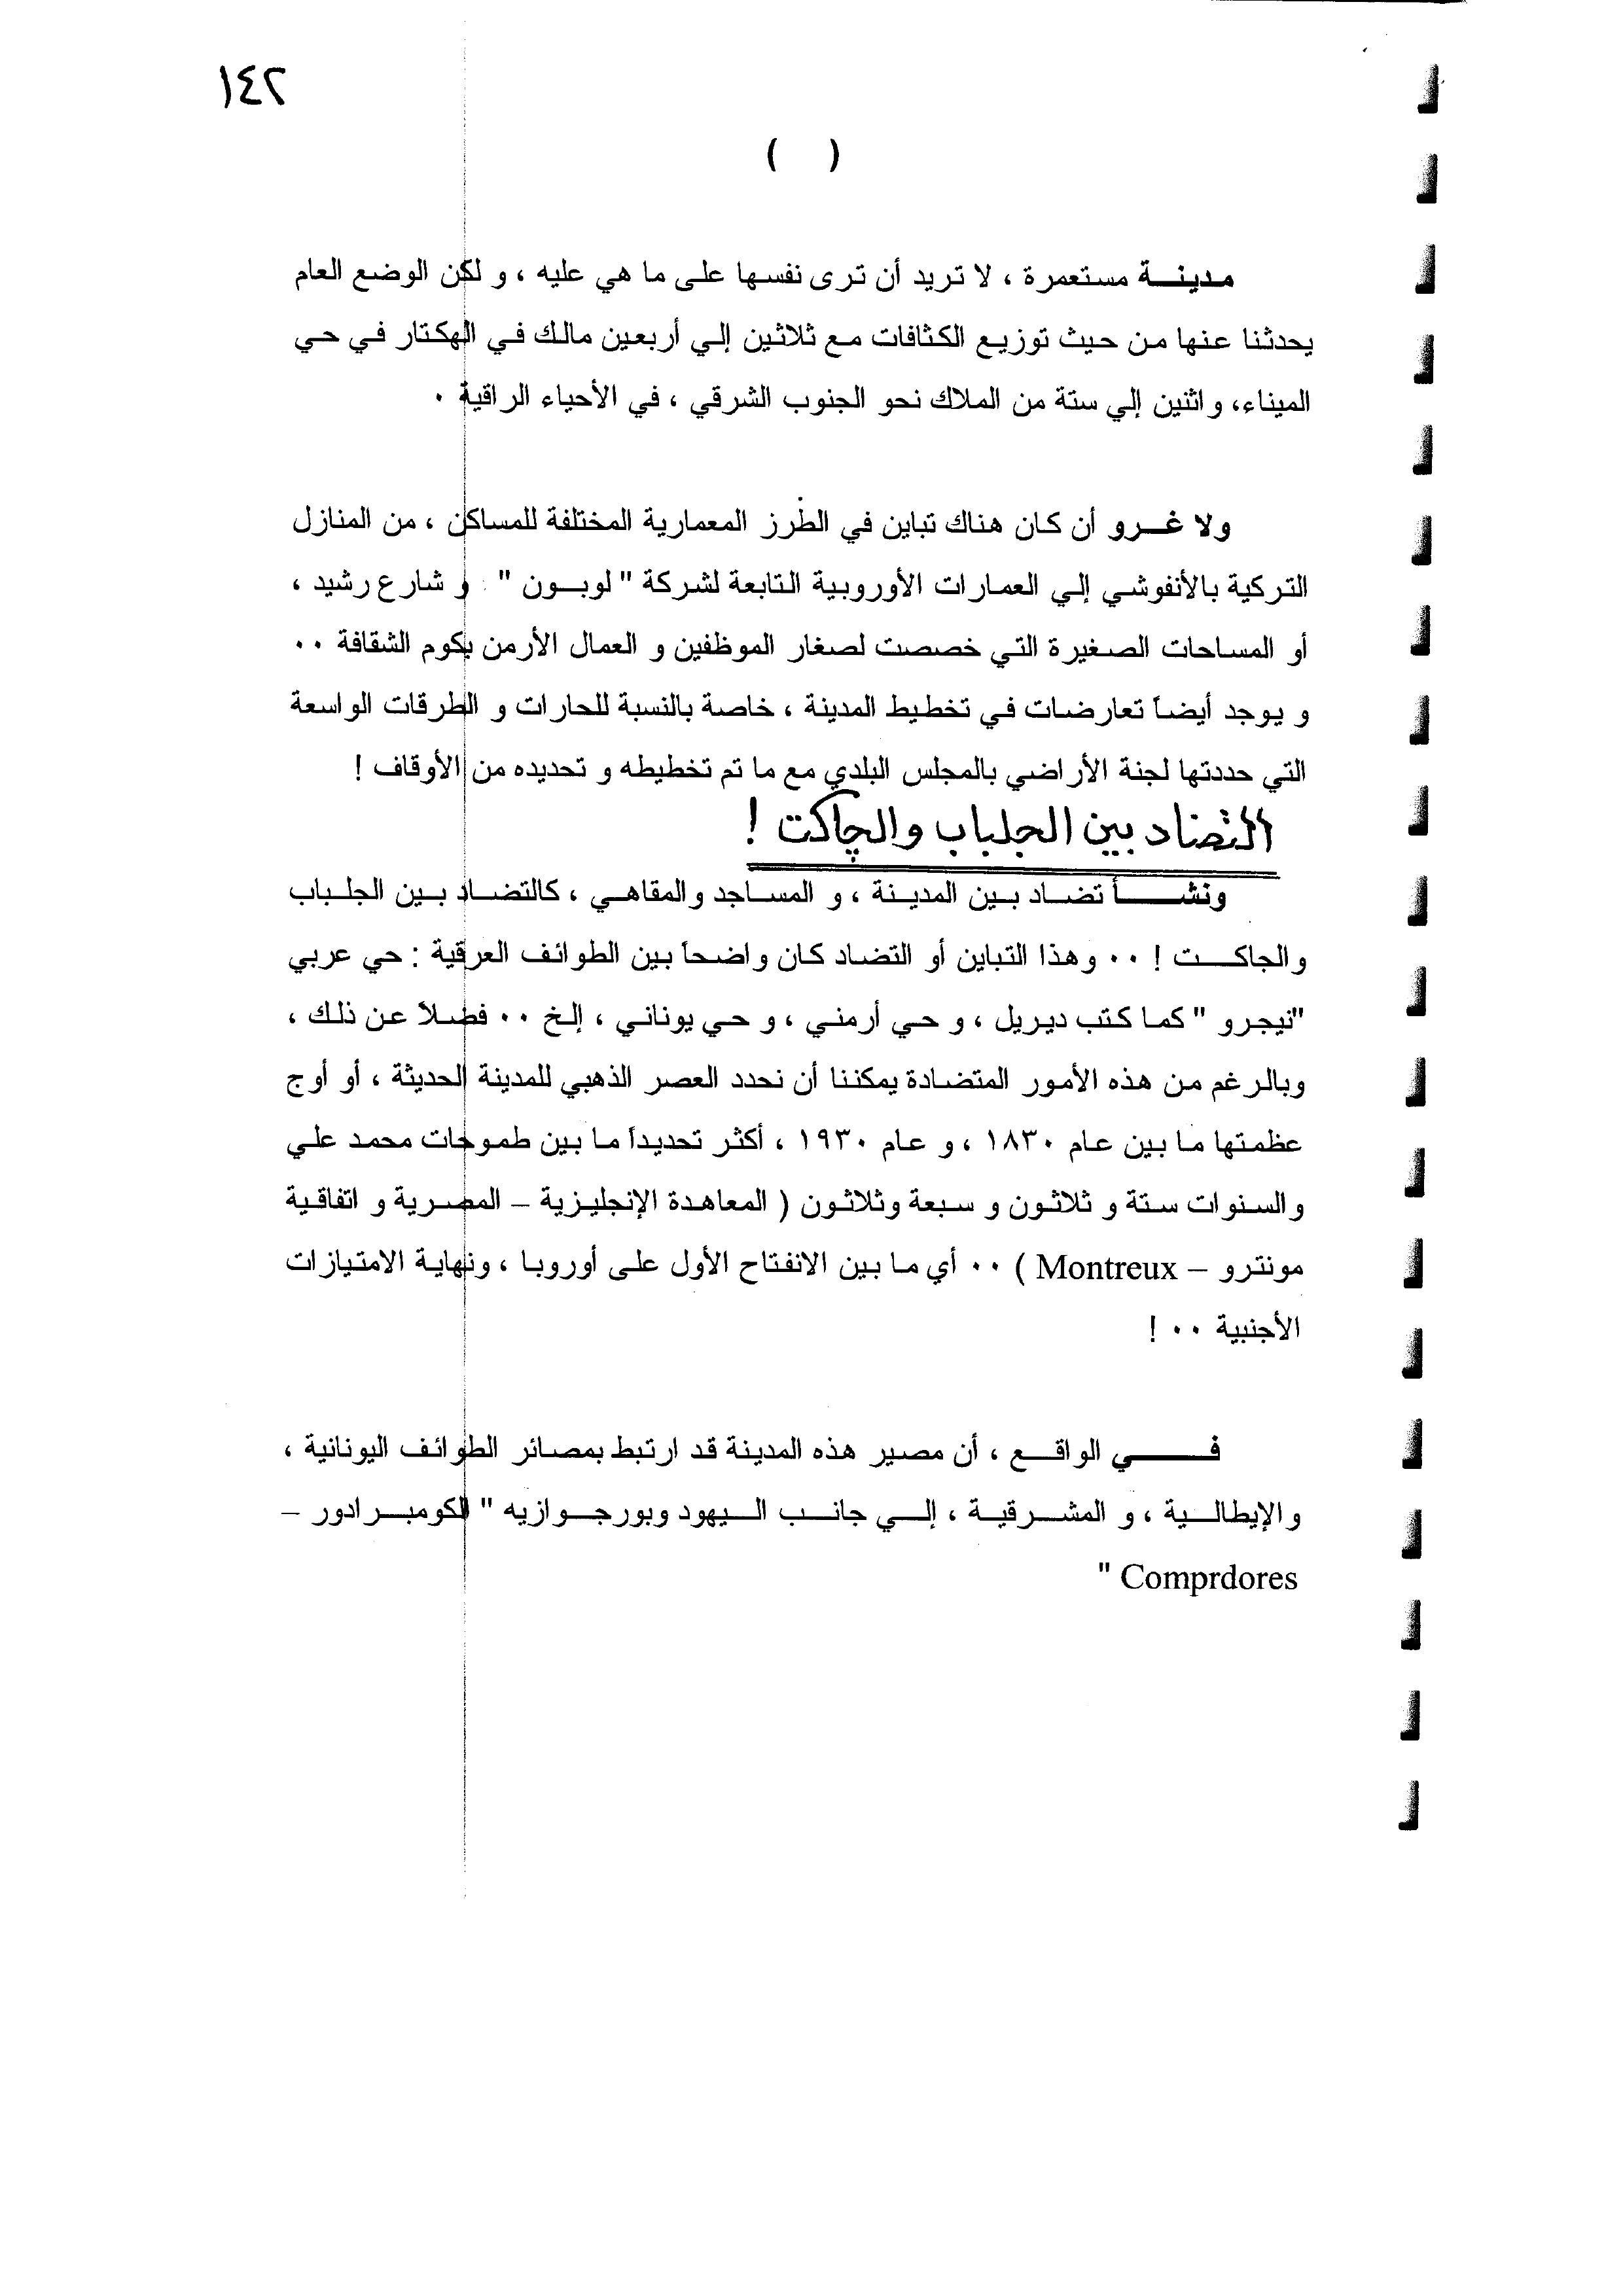 ١٤٢
( )
مدينة مستعمرة ، لا تريد أن ترى نفسها على ما هي عليه ، و لكن الوضع العام
يحدثنا عنها من حيث توزيع الكثافات مع ثلاثين إلي أربعين مالك في الهكتار في حي
الميناء، و اثنين إلي ستة من الملاك نحو الجنوب الشرقي ، في الأحياء الراقية ٠
ولا غرو أن كان هناك تباين في الطرز المعمارية المختلفة للمساكن ، من المنازل
التركية بالأنفوشي إلي العمارات الأوروبية التابعة لشركة " لوبون " و شارع رشيد ،
أو المساحات الصغيرة التي خصصت لصغار الموظفين و العمال الأرمن بكوم الشقافة ٠٠
و يوجد أيضاً تعارضات في تخطيط المدينة ، خاصة بالنسبة للحارات و الطرقات الواسعة
التي حددتها لجنة الأراضي بالمجلس البلدي مع ما تم تخطيطه و تحديده من الأوقاف !
التضاد بين الجلباب والچاكت !
ونشأ تضاد بين المدينة ، و المساجد والمقاهي ، كالتضاد بين الجلباب
والجاكت ! ٠٠ وهذا التباين أو التضاد كان واضحاً بين الطوائف العرقية : حي عربي
"نيجرو " كما كتب ديريل ، و حي أرمني ، و حي يوناني ، إلخ ٠٠ فضلاً عن ذلك ،
وبالرغم من هذه الأمور المتضادة يمكننا أن نحدد العصر الذهبي للمدينة الحديثة ، أو أوج
عظمتها ما بين عام ١٨٣٠ ، و عام ١٩٣٠ ، أكثر تحديداً ما بين طموحات محمد علي
والسنوات ستة و ثلاثون و سبعة وثلاثون ( المعاهدة الإنجليزية – المصرية و اتفاقية
مونترو – Montreux ) ٠٠ أي ما بين الانفتاح الأول على أوروبا ، ونهاية الامتيازات
الأجنبية ٠٠ !
في الواقع ، أن مصير هذه المدينة قد ارتبط بمصائر الطوائف اليونانية ،
والإيطالية ، و المشرقية ، إلي جانب اليهود وبورجوازيه " الكومبرادور –
Comprdores "